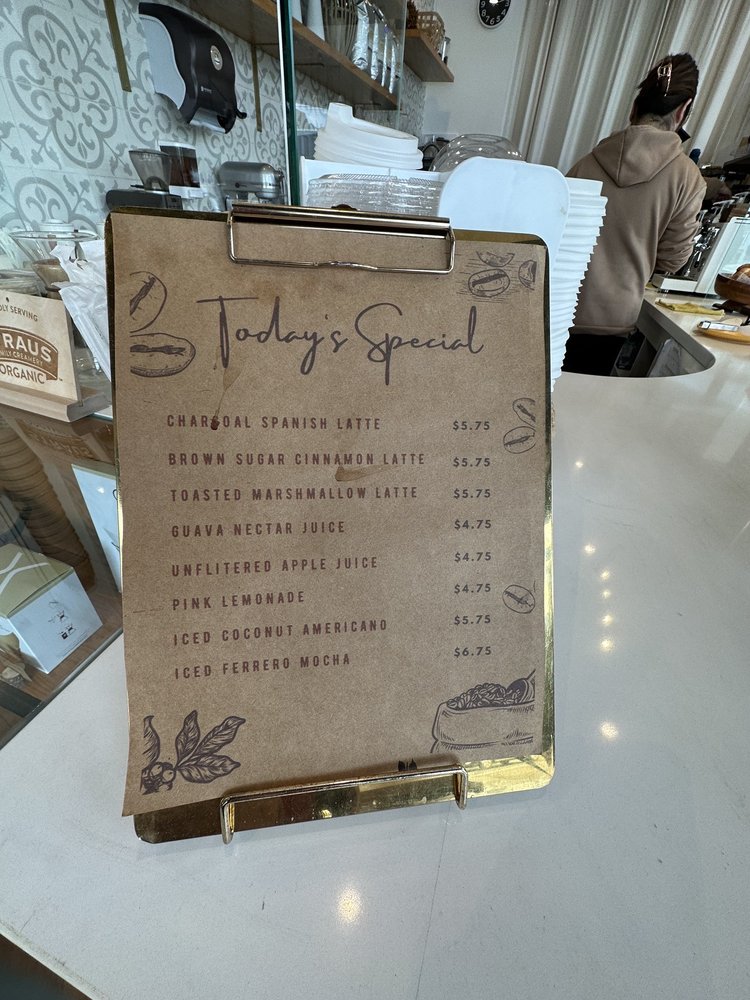 Today's Special
CHARCOAL SPANISH LATTE $5.75
BROWN SUGAR CINNAMON LATTE $5.75
TOASTED MARSHMALLOW LATTE $5.75
GUAVA NECTAR JUICE $4.75
UNFLITERED APPLE JUICE $4.75
PINK LEMONADE $4.75
ICED COCONUT AMERICANO $5.75
ICED FERRERO MOCHA $6.75
SERVING
RAUS
CREAMERY
ORGANIC